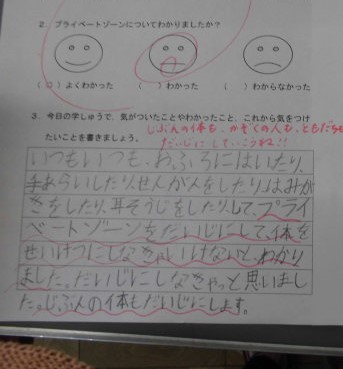 2. プライベートゾーンについてわかりましたか?
(○)よくわかった ( )わかった ( )わからなかった
3. 今日の学しゅうで、気がついたことやわかったこと、これから気をつけ
たいことを書きましょう。
じぶんの体も、かぞくの人も、ともだちも
だいじにしていこうね!!
いつもいつも、おふろにはいたり、
手あらいしたり、せんがんをしたり、はみが
きをしたり、耳そうじをしたり、して、プライ
ベートゾーンをだいじにして、体を
せいけつにしなきゃいけないと、わかり
ました。だいじにしなきゃっと思いまし
た。じぶんの体もだいじにします。